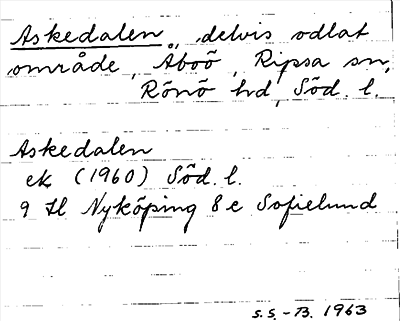 Askedalen, delvis odlat
område, Åboö, Ripsa sn,
Rönö hd, Söd. l.
Askedalen
ek (1960) Söd. l.
9 H Nyköping 8 c Sofielund
S.S. - B. 1963